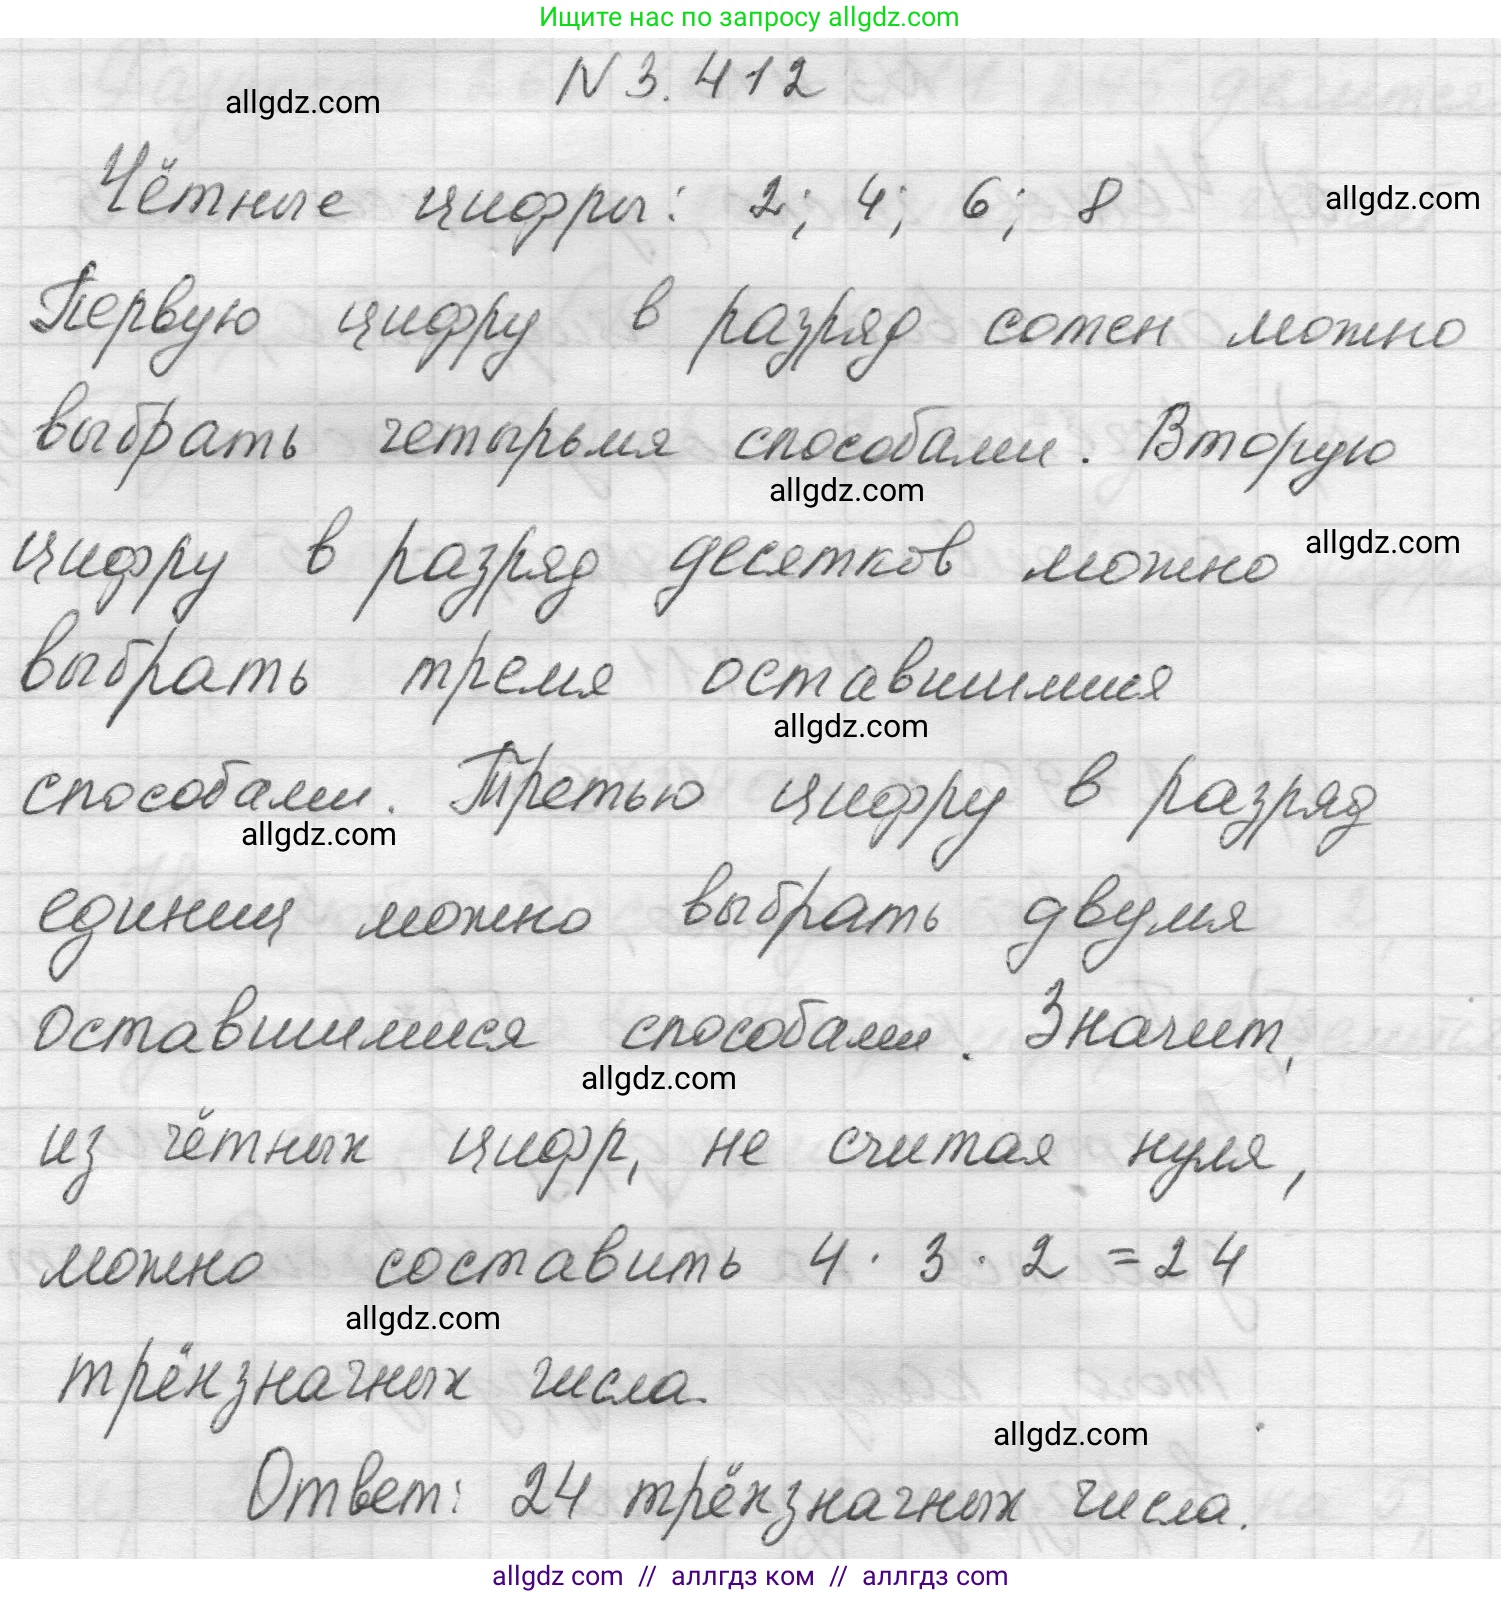 Ищите нас по запросу allgdz.com
N 3.412
allgdz.com
Чётные цифры: 2; 4; 6; 8
allgdz.com
Первую цифру в разряд сотен можно
выбрать четырьмя способами. Вторую
allgdz.com
цифру в разряд десятков можно
allgdz.com
выбрать тремя оставшимися
allgdz.com
способами. Третью цифру в разряд
allgdz.com
единиц можно выбрать двумя
оставшимися способами. Значит,
allgdz.com
из чётных цифр, не считая нуля,
можно составить 4 · 3 · 2 = 24
allgdz.com
трёхзначных числа.
allgdz.com
Ответ: 24 трёхзначных числа.
allgdz com // аллгдз ком // аллгдз com